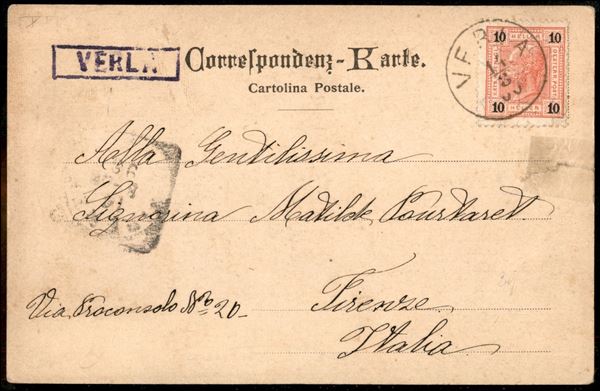 VERLA
Correspondenz-Karte.
Cartolina Postale.
10 HELLER 10
10 HELLER 10
VERLA
Alla Gentilissima
Signorina Matilde Courvaret
Firenze
Via Proconsolo No 20-
Italia